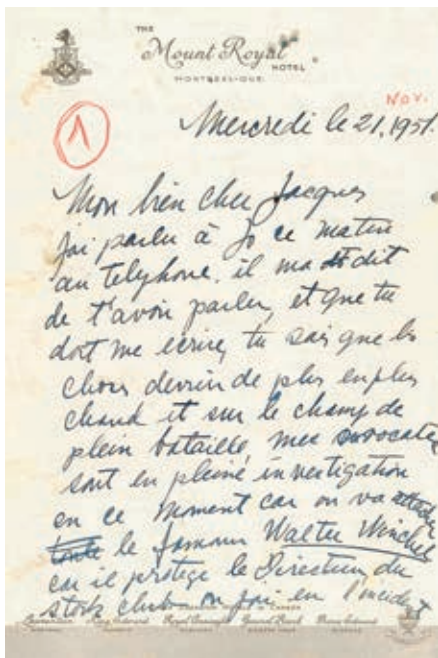 THE
Mount Royal
HOTEL
MONTREAL-QUE.
NOV.
1
Mercredi le 21, 1951.
Mon bien cher Jacques
jai parler à Jo ce matin
au telephone. il ma dit
de t'avoir parler, et que tu
doit me ecrire, tu sais que les
choses devien de plus en plus
chaud et sur le champ de
plein bataille, mes avocates
sont en pleine investigation
en ce moment car on va attaquer
le famour Walter Winchel
car il protege le Directeur du
stork club ou jai eu l'incident